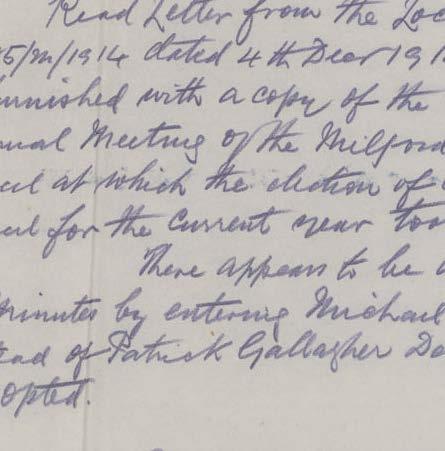 Read Letter from the Loc
5/M/1914 dated 4th Decr 191
urnished with a copy of the
nual Meeting of the Milford
cil at which the election of
cil for the current year too
There appears to be a
minutes by entering Michael
ead of Patrick Gallagher Do
opted.